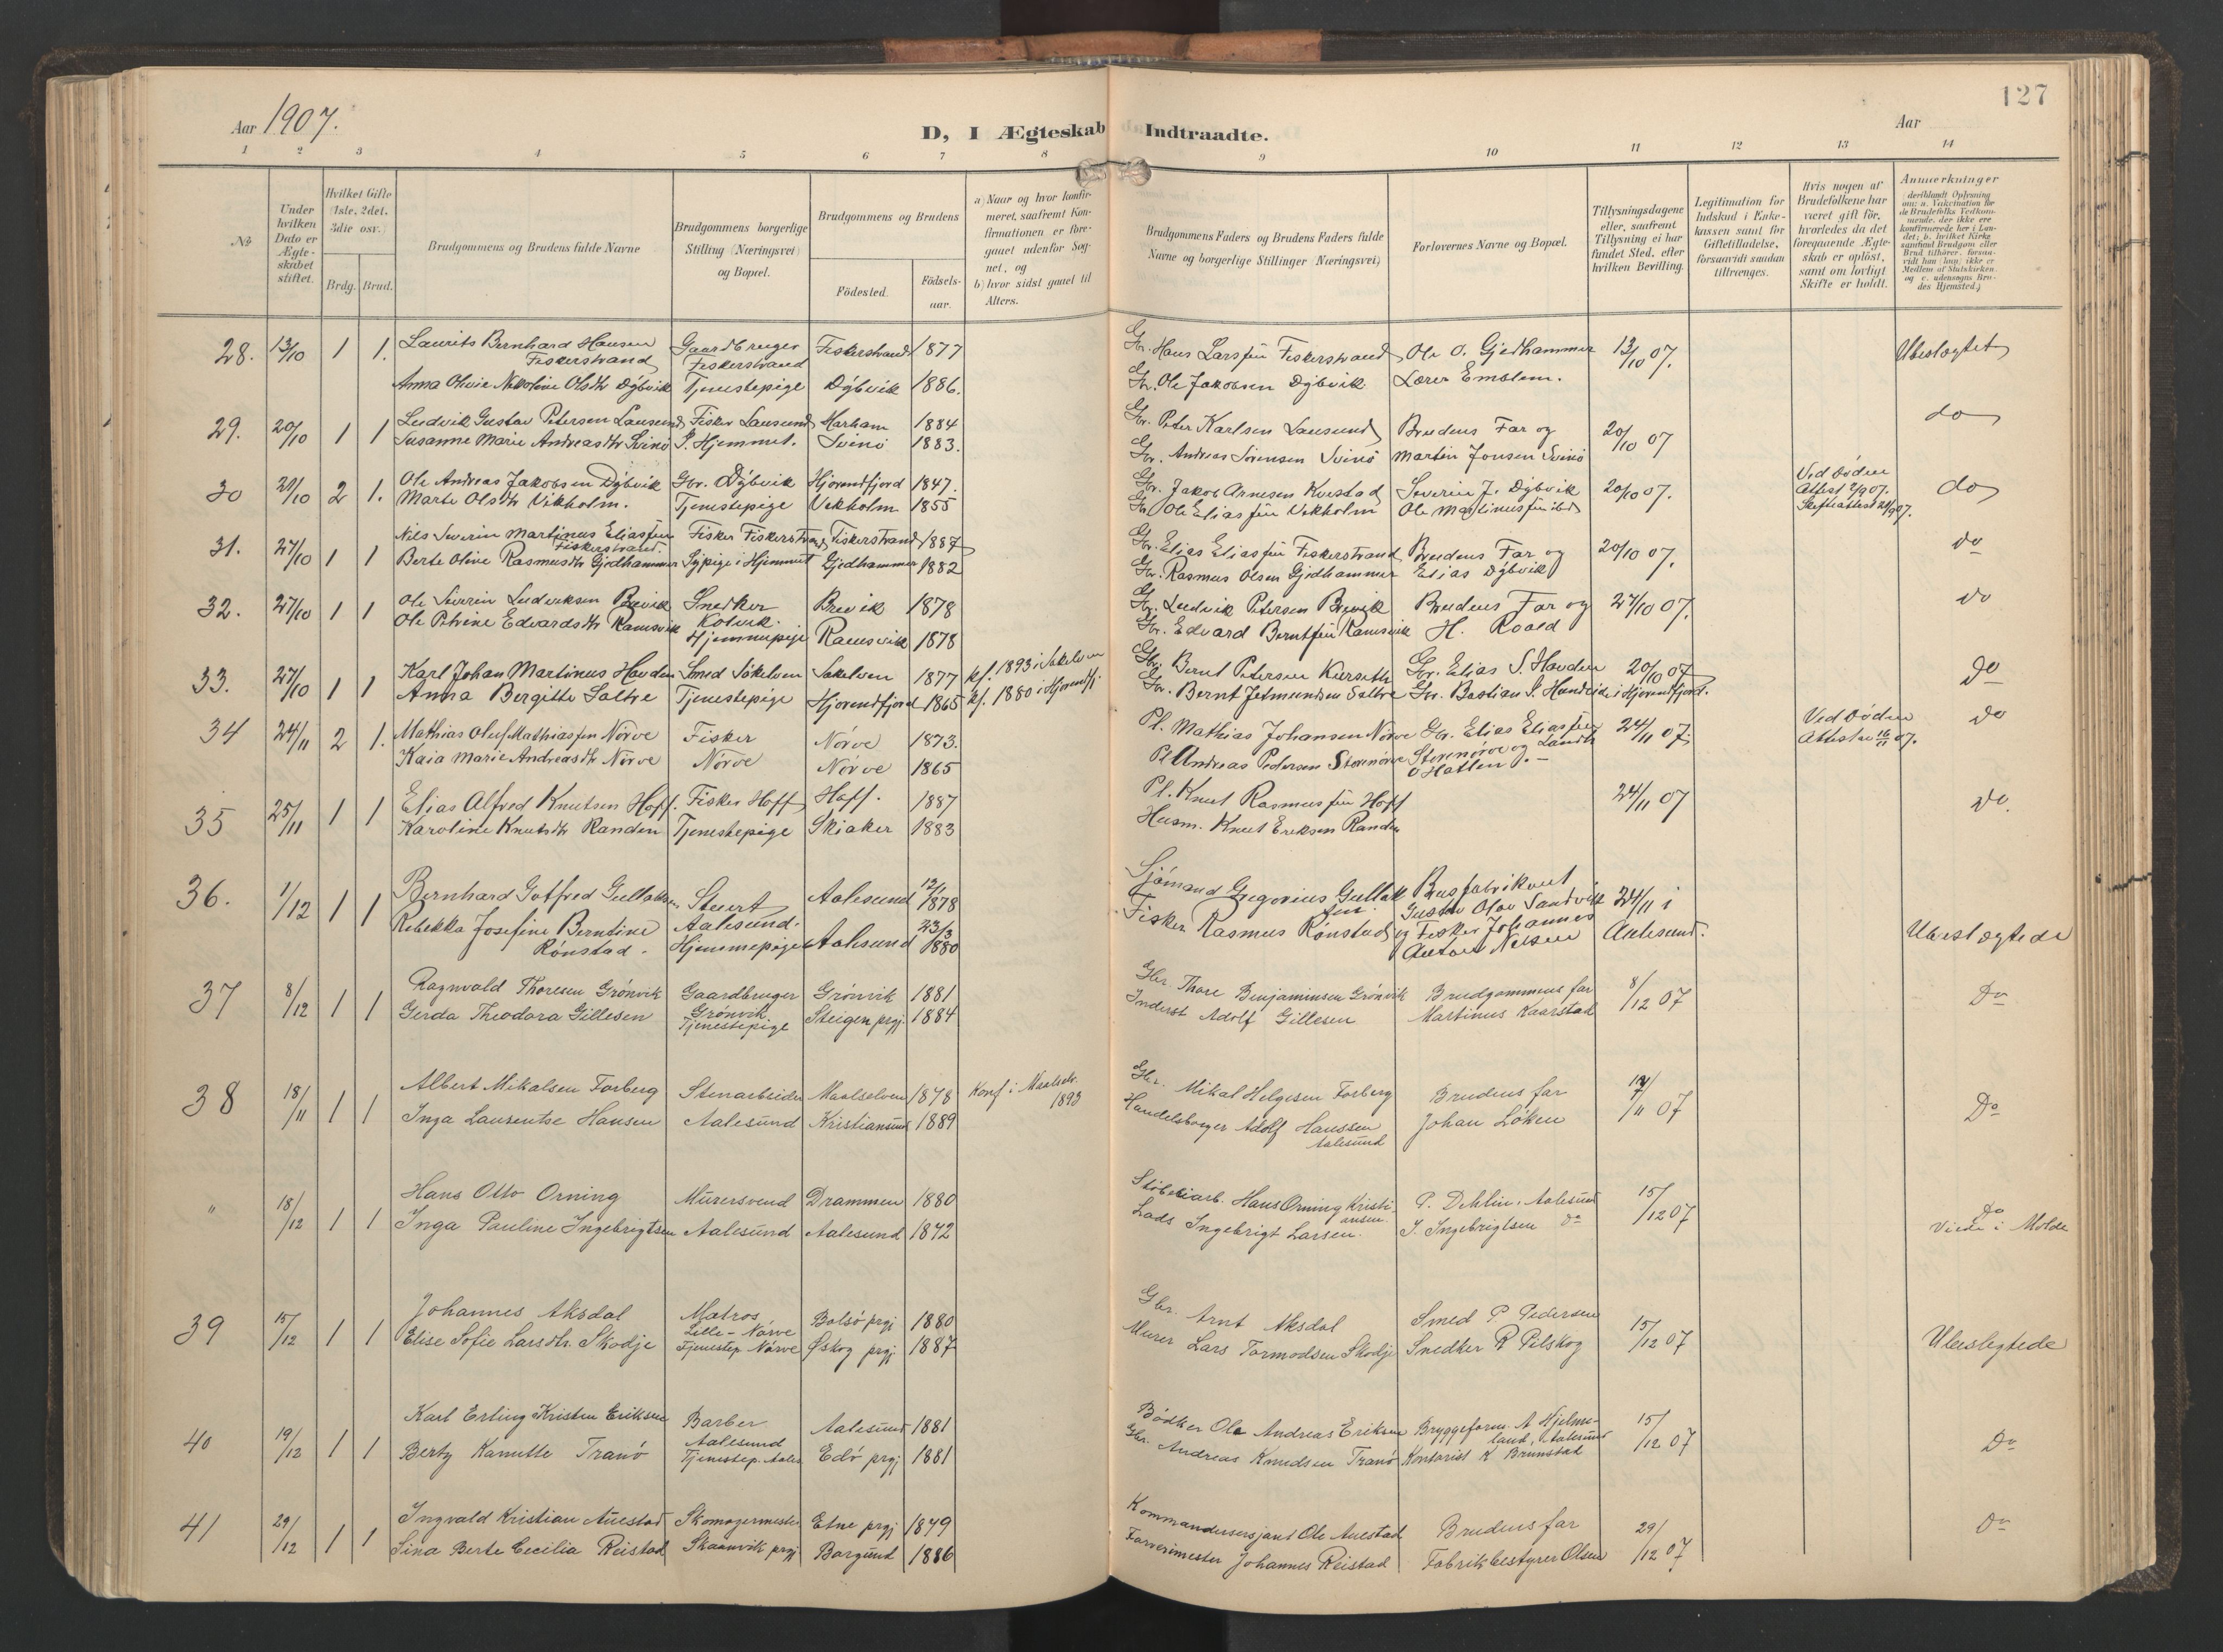 127
Aar 1907.
D, I Ægteskab Indtraadte.
Aar
1 2 3 4 5 6 7 8 9 10 11 12 13 14
№
Under hvilken Dato er Ægteskabet stiftet.
Hvilket Gifte (1ste, 2det, 3die osv.)
Brdg. Brud.
Brudgommens og Brudens fulde Navne
Brudgommens borgerlige Stilling (Næringsvei) og Bopæl.
Brudgommens og Brudens
Fødested. Fødselsaar.
a) Naar og hvor konfirmeret, saafremt Konfirmationen er foregaaet udenfor Sognet, og
b) hvor sidst gaaet til Alters.
Brudgommens Faders og Brudens Faders fulde Navne og borgerlige Stillinger (Næringsvei)
Forlovernes Navne og Bopæl.
Tillysningsdagene eller, saafremt Tillysning ei har fundet Sted, efter hvilken Bevilling.
Legitimation for Indskud i Enkekassen samt for Giftetilladelse, forsaavidt saadan tiltrænges.
Hvis nogen af Brudefolkene har været gift før, hvorledes da det foregaaende Ægteskab er opløst, samt om lovligt Skifte er holdt.
Anmærkninger
28. 13/10 1 1. Laurits Bernhard Hansen Fiskerstrand Gaardbruger Fiskerstrand Fiskerstrand 1877 Gbr. Hans Larsen Fiskerstrand Ole O. Gjedhammer 13/10 07. Ubeslegtet
Anna Olivie Nikoline Olsdtr Dybvik Tjenestepige Dybvik 1886. Gbr. Ole Jakobsen Dybvik Lærer Emblem.
29. 20/10 1 1 Ludvik Gustav Petersen Lausund Fisker Lausund Harham 1884 Gbr. Peter Karlsen Lausund Brudens Far og 20/10 07 do
Susanne Marie Andreasdtr Svinø I Hjemmet. Svinø 1883. Gbr. Andreas Sørensen Svinø Martin Jonsen Svinø
30 20/10 2 1. Ole Andreas Jakobsen Dybvik Gbr. Dybvik Hjørendfjord 1847. Gbr. Jakob Arnesen Kvistad Severin J. Dybvik 20/10 07. Ved Døden Attest 2/9 07. do
Marte Olsdtr Vikholm. Tjenestepige Vikholm 1855 Ole Eliassen Vikholm Ole Martinussen ibd Skifteattest 24/9 07.
31. 27/10 1 1 Nils Severin Martinus Eliassen Fiskerstrand. Fisker Fiskerstrand Fiskerstrand 1887 Gbr. Elias Eliassen Fiskerstrand Brudens Far og 20/10 07. do
Berte Oline Rasmusdtr Gjedhammer Sypige i Hjemmet Gjedhammer 1882 Gbr. Rasmus Olsen Gjedhammer Elias Dybvik
32. 27/10 1 1 Ole Severin Ludviksen Brevik Snedker Kolvik. Brevik 1878 Gbr. Ludvik Petersen Brevik Brudens Far og 27/10 07. do
Ole Petrine Edvardsdtr Ramsvik Hjemmepige Ramsvik 1878 Gbr. Edvard Berntsen Ramsvik H. Roald
33. 27/10 1 1 Karl Johan Martinus Hovden Smed Søkelven Søkelven 1877 kf. 1893 i Søkelven Gbr. Bernt Petersen Kurseth Gbr. Elias S. Hovden 20/10 07 Do
Anna Bergitte Saltre Tjenestepige Hjørendfjord 1865 kf. 1880 i Hjørendfj. Gbr. Bernt Jetmundsen Saltre Gbr. Bastian S. Hundeide i Hjørendfjord.
34 24/11 2 1. Mathias Oluf Mathiassen Nørve Fisker Nørve 1873. Pl. Mathias Johansen Nørve Gbr. Elias Eliassen 24/11 07. Ved Døden Attest 16/11 07. do
Kaia Marie Andreasdtr Nørve Nørve Nørve 1865 Pl Andreas Pedersen Storenørve Storenørve og Landh. O Hatlen.
35 25/11 1 1 Elias Alfred Knutsen Hoff. Fisker Hoff Hoff. 1887 Pl. Knut Rasmussen Hoff 24/11 07 do.
Karoline Knutsdtr Randen Tjenestepige Skiaker 1883 Husm. Knut Eriksen Randen
36. 1/12 1 1 Bernhard Gotfred Gullaksen Stuert Aalesund. Aalesund 12/1 1878 Sjømand Gregorius Gullaksen Brusfabrikant Gustav Olav Sandvik 24/11 i Aalesund. Ubeslegtede
Rebekka Josefine Berntine Rønstad. Hjemmepige Aalesund 23/3 1880 Fisker Rasmus Rønstad og Fisker Johannes Anton Nelsen
37 8/12 1 1 Ragnvald Thoresen Grønvik Gaardbruger Grønvik Grønvik 1881 Gbr. Thore Benjaminsen Grønvik Brudgommens far 8/12 07 Do
Gerda Theodora Gillesen Tjenestepige Steigen prgj. 1884 Inderst Adolf Gillesen Martinus Kaarstad
38 18/11 1 1 Albert Mikalsen Forberg Stenarbeider Maalselven 1878 Konf i Maalselv. 1893 Gbr. Mikal Helgesen Forberg Brudens far 17/11 07 Do
Inga Laurentse Hansen Aalesund Kristiansund 1889 Handelsborger Adolf Hanssen Aalesund Johan Løken
" 18/12 1 1 Hans Otto Orning Murersvend Drammen 1880 Støberiarb. Hans Orning Kristiansen P. Dehlin, Aalesund 15/12 07 Do
Inga Pauline Ingebrigtsen Aalesund Aalesund 1872 Lods Ingebrigt Larsen. I. Ingebrigtsen Do Viede i Molde
39 15/12 1 1 Johannes Aksdal Matros Lille-Nørve Bolsø prgj 1880 Gbr. Arnt Aksdal Smed P. Pedersen 15/12 07 Ubeslegtede
Elise Sofie Larsdtr. Skodje Tjenestep Nørve Ørskog prgj 1887 Murer Lars Tormodsen Skodje Snedker R Pilskog
40 19/12 1 1 Karl Erling Kristen Eriksen Barber Aalesund Aalesund 1881 Bødker Ole Andreas Eriksen Bryggeform. A Hjelmeland, Aalesund 15/12 07 Do
Berty Kamitte Tranø Tjenestep. Aales Edø prgj 1881 Gbr. Andreas Knudsen Tranø Kontorist K Brunstad
41 29/12 1 1 Ingvald Kristian Auestad Skomagermester Etne prgj 1879 Kommandersersjant Ole Auestad Brudens far 29/12 07 Do
Sina Berte Cecilia Reistad Skaanvik prgj Borgund 1886 Farverimester Johannes Reistad Fabrikbestyrer Olsen